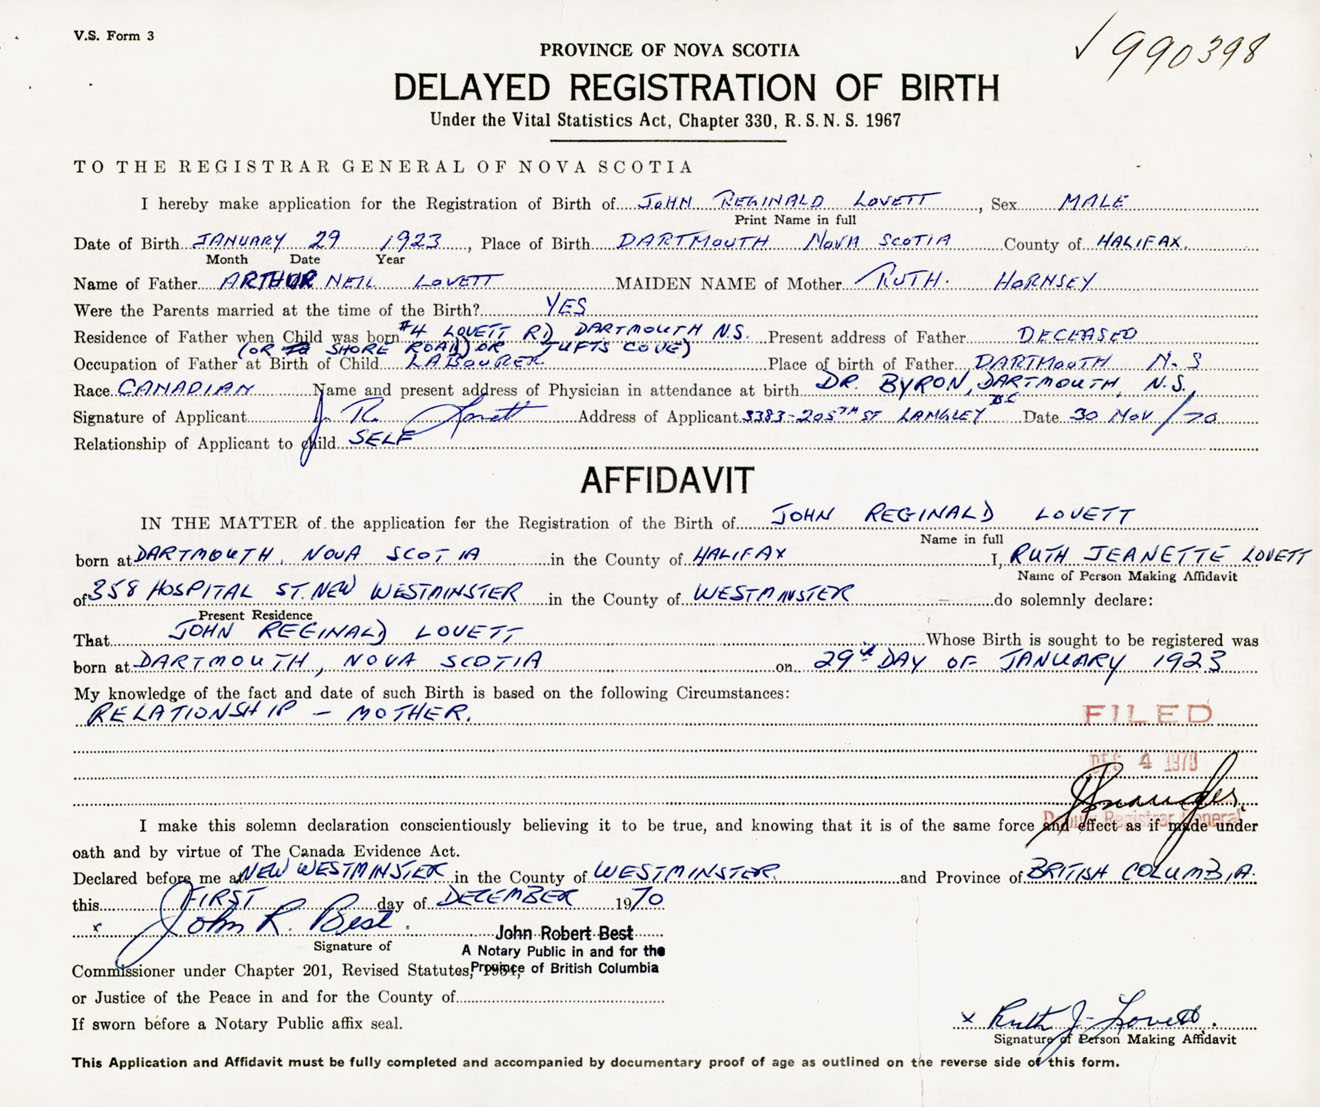 V.S. Form 3
✓990398
PROVINCE OF NOVA SCOTIA
DELAYED REGISTRATION OF BIRTH
Under the Vital Statistics Act, Chapter 330, R. S. N. S. 1967
TO THE REGISTRAR GENERAL OF NOVA SCOTIA
I hereby make application for the Registration of Birth of JOHN REGINALD LOVETT, Sex MALE
Print Name in full
Date of Birth JANUARY 29 1923, Place of Birth DARTMOUTH NOVA SCOTIA County of HALIFAX.
Month Date Year
Name of Father ARTHUR NEIL LOVETT MAIDEN NAME of Mother RUTH. HORNSEY
Were the Parents married at the time of the Birth? YES
Residence of Father when Child was born #4 LOVETT RD DARTMOUTH N.S. Present address of Father DECEASED
(OR SHORE ROAD) OR TUFTS COVE)
Occupation of Father at Birth of Child LABOURER Place of birth of Father DARTMOUTH N.S
Race CANADIAN Name and present address of Physician in attendance at birth DR. BYRON, DARTMOUTH, N.S.
Signature of Applicant J. R. Lovett Address of Applicant 3383-205TH ST LANGLEY BC Date 30 NOV/70
Relationship of Applicant to child SELF
AFFIDAVIT
IN THE MATTER of the application for the Registration of the Birth of JOHN REGINALD LOVETT
Name in full
born at DARTMOUTH, NOVA SCOTIA in the County of HALIFAX I, RUTH JEANETTE LOVETT
Name of Person Making Affidavit
of 358 HOSPITAL ST. NEW WESTMINSTER in the County of WESTMINSTER do solemnly declare:
Present Residence
That JOHN REGINALD LOVETT Whose Birth is sought to be registered was
born at DARTMOUTH, NOVA SCOTIA on 29th DAY OF JANUARY 1923
My knowledge of the fact and date of such Birth is based on the following Circumstances:
RELATIONSHIP - MOTHER.
FILED
DEC 4 1970
Deputy Registrar General
I make this solemn declaration conscientiously believing it to be true, and knowing that it is of the same force and effect as if made under
oath and by virtue of The Canada Evidence Act.
Declared before me at NEW WESTMINSTER in the County of WESTMINSTER and Province of BRITISH COLUMBIA.
this FIRST day of DECEMBER 1970
x John R. Best.
Signature of
John Robert Best
A Notary Public in and for the
Province of British Columbia
Commissioner under Chapter 201, Revised Statutes, 1954,
or Justice of the Peace in and for the County of
If sworn before a Notary Public affix seal.
x Ruth J. Lovett.
Signature of Person Making Affidavit
This Application and Affidavit must be fully completed and accompanied by documentary proof of age as outlined on the reverse side of this form.